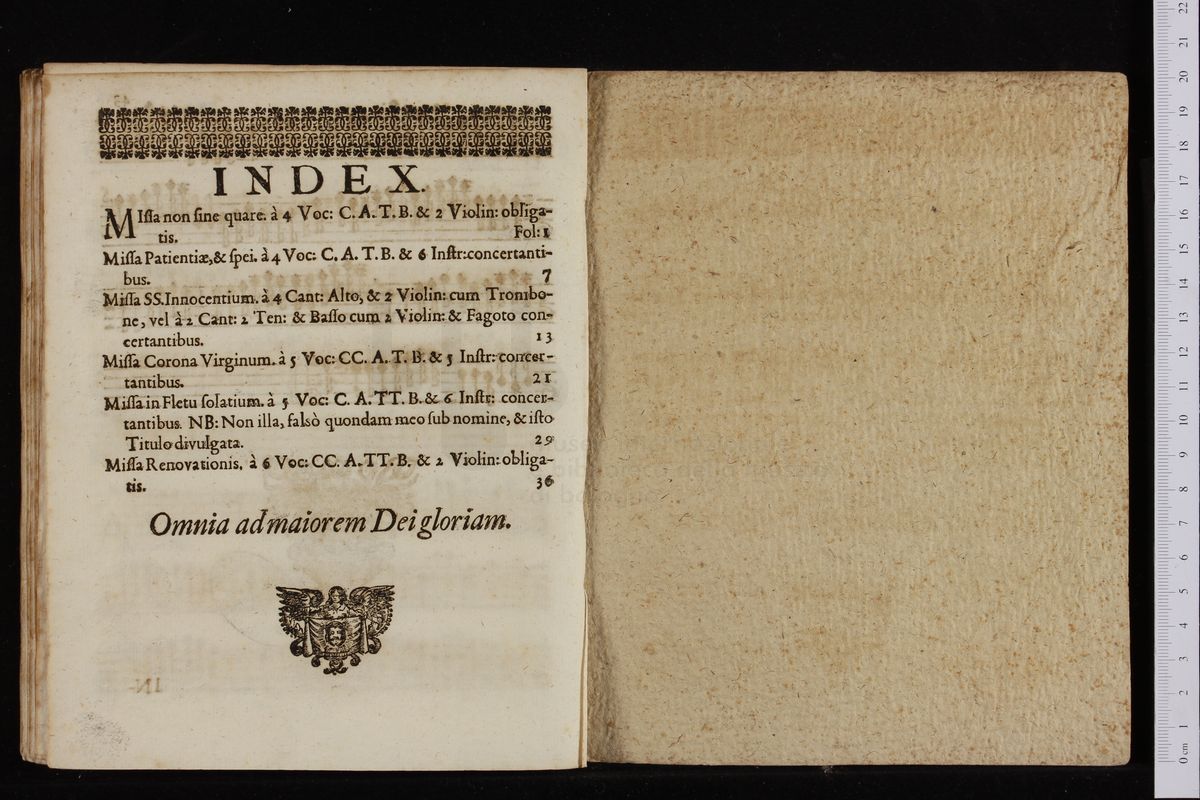 INDEX.
MIſſa non ſine quare. à 4 Voc: C. A. T. B. & 2 Violin: obliga-
tis. Fol: 1
Miſſa Patientiæ, & ſpei. à 4 Voc: C. A. T. B. & 6 Inſtr: concertanti-
bus. 7
Miſſa SS. Innocentium. à 4 Cant: Alto, & 2 Violin: cum Trombo-
ne, vel à 2 Cant: 2 Ten: & Baſſo cum 2 Violin: & Fagoto con-
certantibus. 13
Miſſa Corona Virginum. à 5 Voc: CC. A. T. B. & 5 Inſtr: concer-
tantibus. 21
Miſſa in Fletu ſolatium. à 5 Voc: C. A. TT. B. & 6 Inſtr: concer-
tantibus. NB: Non illa, falsò quondam meo ſub nomine, & iſto
Titulo divulgata. 29
Miſſa Renovationis. à 6 Voc: CC. A. TT. B. & 2 Violin: obliga-
tis. 36
Omnia ad maiorem Dei gloriam.
22
21
20
19
18
17
16
15
14
13
12
11
10
9
8
7
6
5
4
3
2
1
0 cm